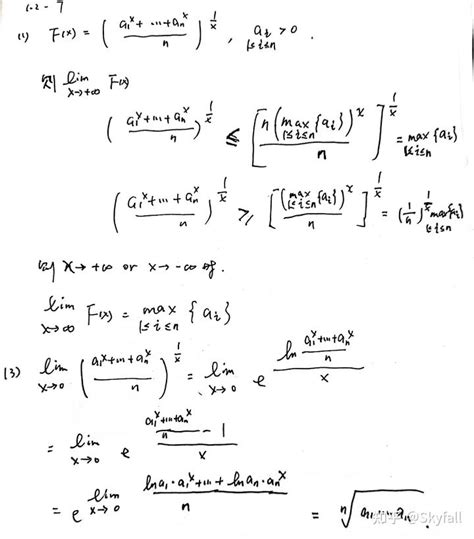 1.2-7
(1) F(x) = ( (a₁ˣ+…+aₙˣ)/n )^(1/x), aᵢ>0. 1≤i≤n
则 lim_{x→+∞} F(x)
( (a₁ˣ+…+aₙˣ)/n )^(1/x) ≤ [ n( max_{1≤i≤n} {aᵢ} )ˣ / n ]^(1/x) = max_{1≤i≤n} {aᵢ}
( (a₁ˣ+…+aₙˣ)/n )^(1/x) ≥ [ ( max_{1≤i≤n} {aᵢ} )ˣ / n ]^(1/x) = (1/n)^(1/x) max_{1≤i≤n} {aᵢ}
则 x→+∞ or x→-∞ 时.
lim_{x→∞} F(x) = max_{1≤i≤n} {aᵢ}
(3) lim_{x→0} ( (a₁ˣ+…+aₙˣ)/n )^(1/x) = lim_{x→0} e^( ln((a₁ˣ+…+aₙˣ)/n) / x )
= lim_{x→0} e^( ((a₁ˣ+…+aₙˣ)/n - 1) / x )
= e^( lim_{x→0} (lna₁·a₁ˣ+…+lnaₙ·aₙˣ)/n ) = ⁿ√(a₁…aₙ).
知乎 @Skyfall